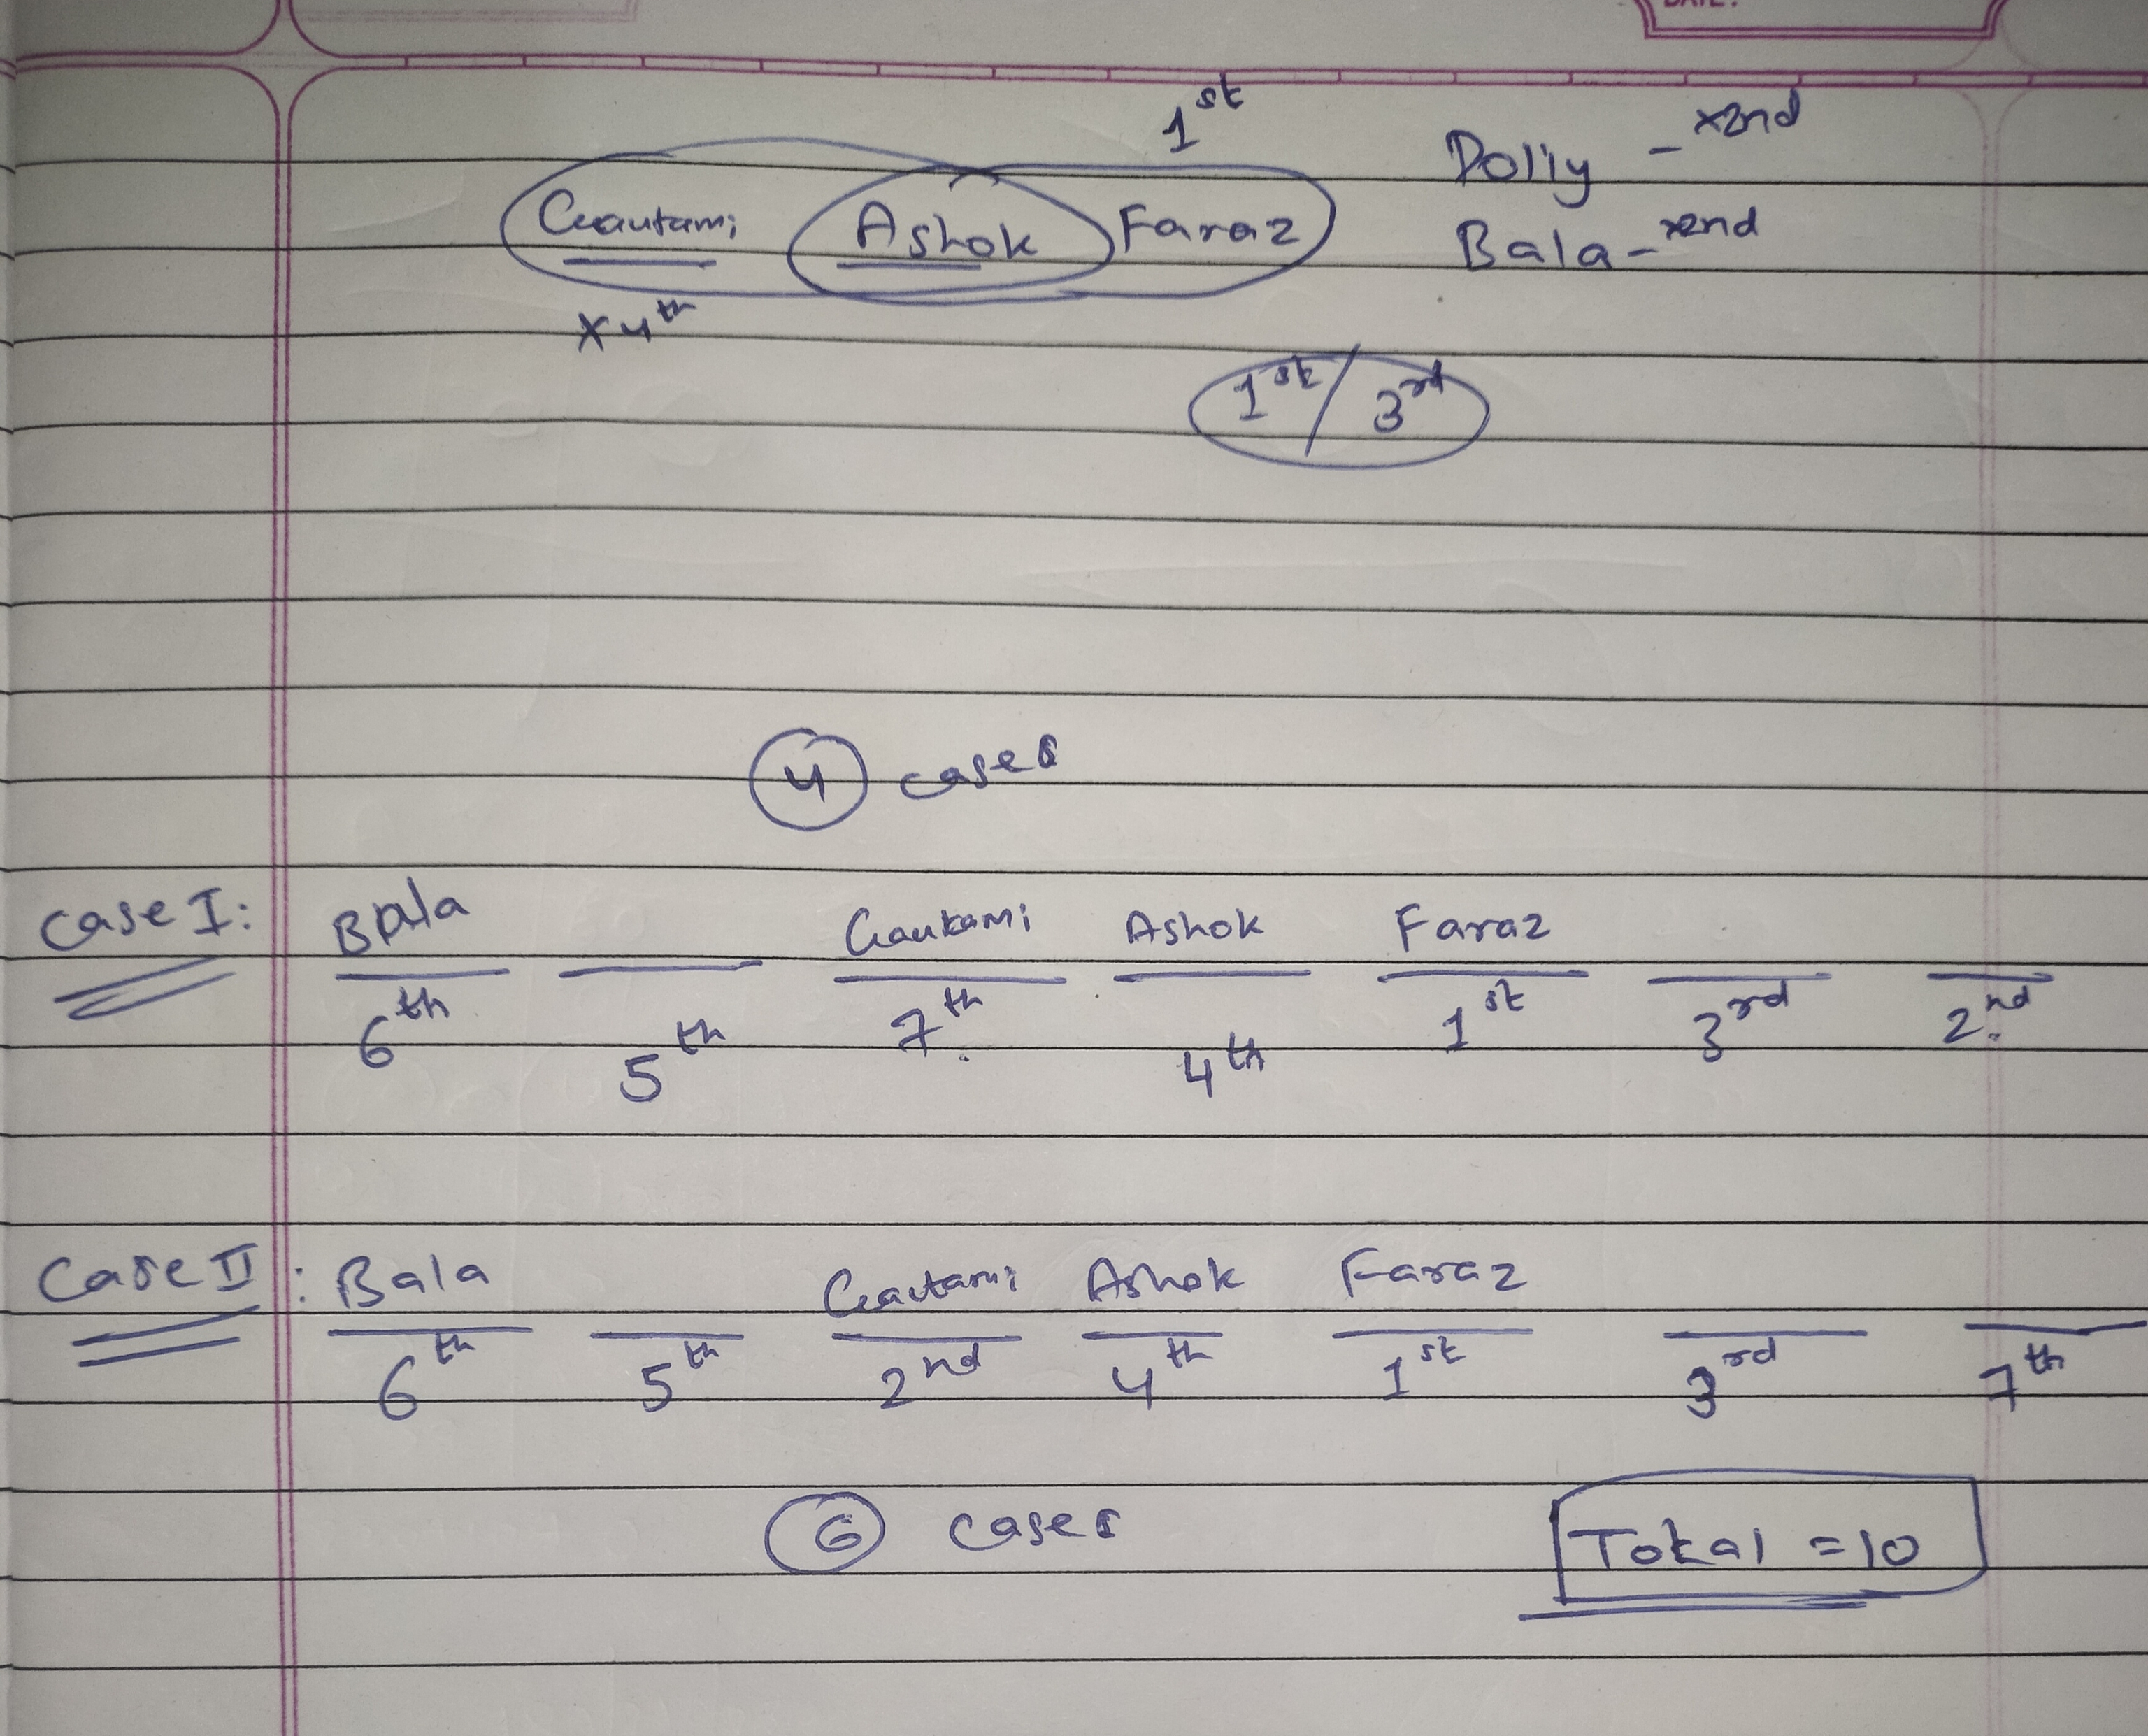 1st
Dolly - x2nd
Gautami Ashok Faraz
Bala - x2nd
x4th
1st/3rd
4 cases
Case I: Bala Gautami Ashok Faraz
6th 5th 7th 4th 1st 3rd 2nd
Case II: Bala Gautami Ashok Faraz
6th 5th 2nd 4th 1st 3rd 7th
6 cases
Total = 10